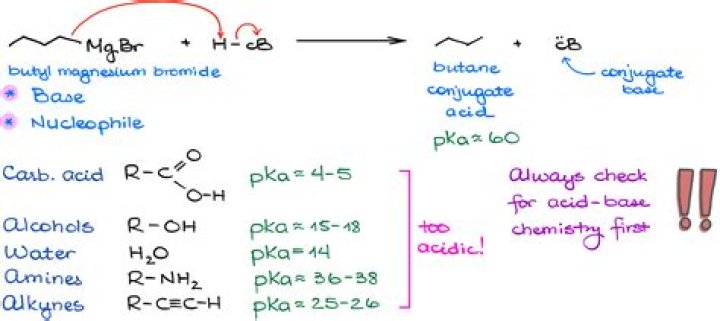 MgBr + H-cB + c̈B
butyl magnesium bromide
* Base
* Nucleophile
butane
conjugate
acid
pKa≈60
conjugate
base
Carb. acid R-C O O-H pKa≈4-5
Alcohols R-OH pKa≈15-18
Water H₂O pKa=14
Amines R-NH₂ pKa≈36-38
Alkynes R-C≡C-H pKa≈25-26
too
acidic!
Always check
for acid-base
chemistry first
!!